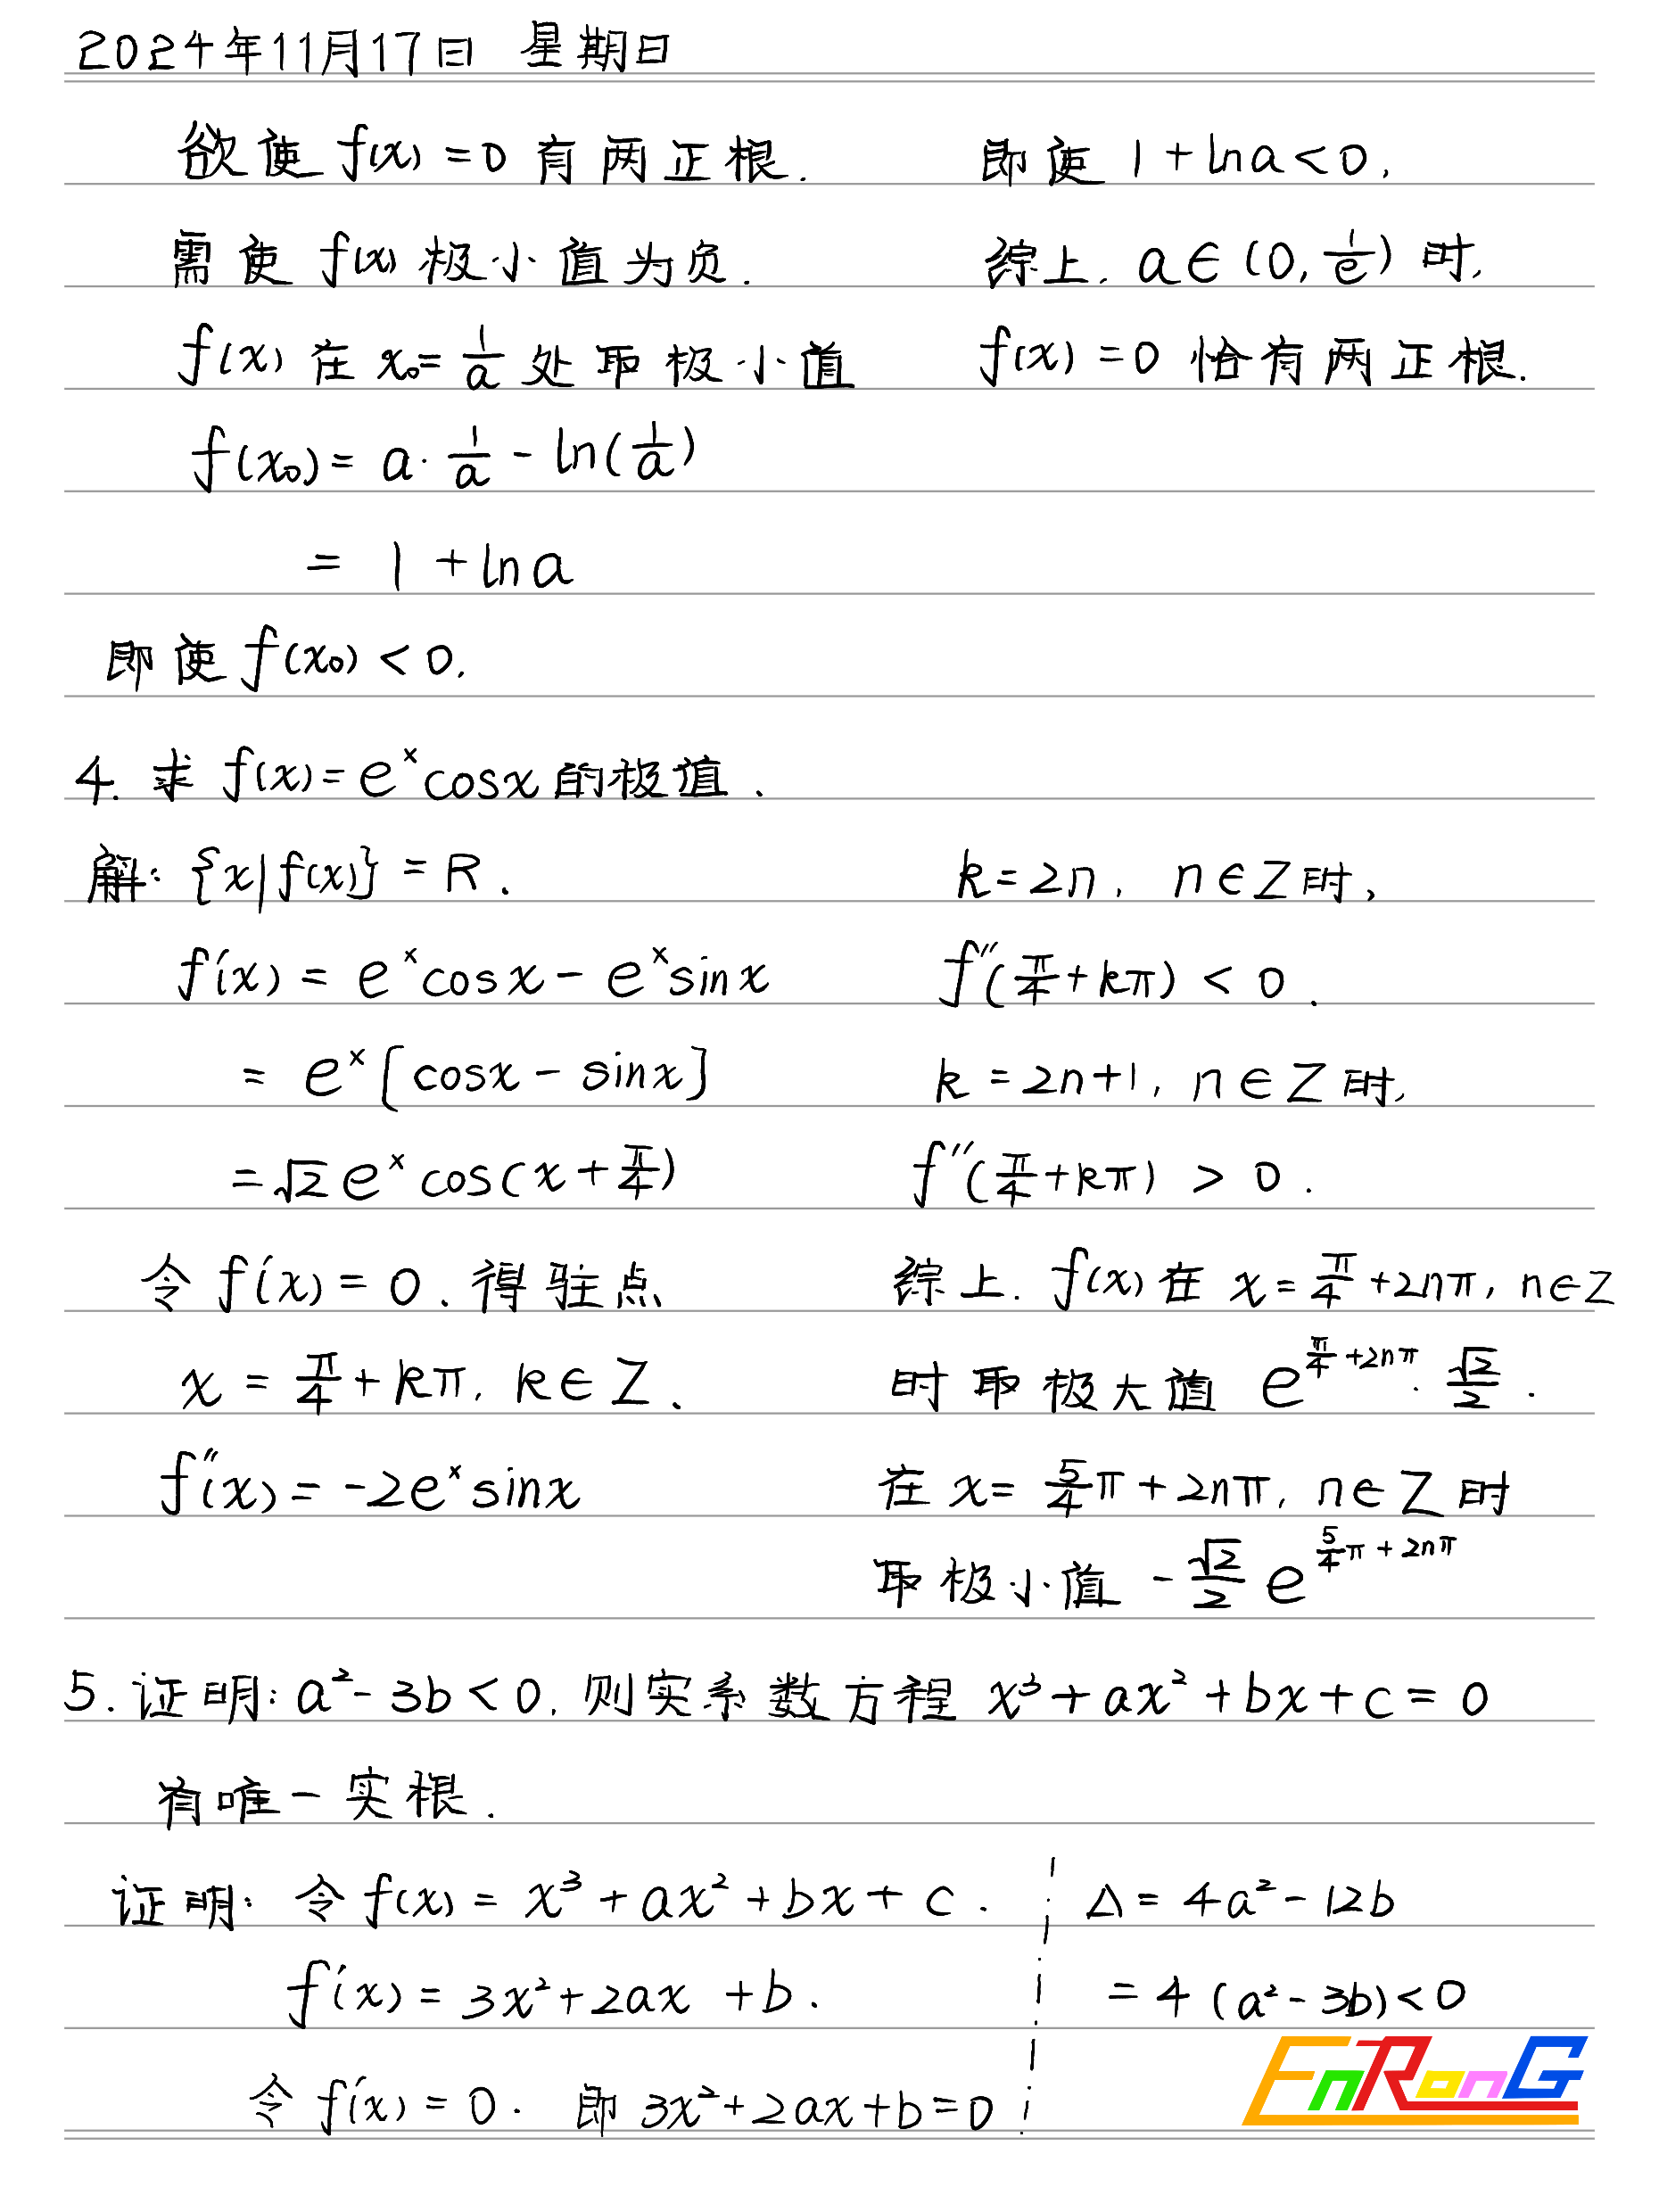 2024年11月17日 星期日
欲使 f(x) = 0 有两正根.
需使 f(x) 极小值为负.
f(x) 在 x₀ = 1/a 处取极小值
f(x₀) = a · 1/a - ln(1/a)
= 1 + ln a
即使 f(x₀) < 0.
即使 1 + ln a < 0,
综上, a ∈ (0, 1/e) 时,
f(x) = 0 恰有两正根.
4. 求 f(x) = e^x cosx 的极值.
解: {x|f(x)} = R.
f'(x) = e^x cosx - e^x sinx
= e^x [cosx - sinx]
= √2 e^x cos(x + π/4)
令 f'(x) = 0. 得驻点
x = π/4 + kπ, k ∈ Z.
f''(x) = -2e^x sinx
k = 2n, n ∈ Z 时,
f''(π/4 + kπ) < 0.
k = 2n+1, n ∈ Z 时,
f''(π/4 + kπ) > 0.
综上. f(x) 在 x = π/4 + 2nπ, n ∈ Z
时取极大值 e^(π/4 + 2nπ) · √2/2.
在 x = 5/4 π + 2nπ, n ∈ Z 时
取极小值 -√2/2 e^(5/4 π + 2nπ)
5. 证明: a² - 3b < 0, 则实系数方程 x³ + ax² + bx + c = 0
有唯一实根.
证明: 令 f(x) = x³ + ax² + bx + c.
f'(x) = 3x² + 2ax + b.
令 f'(x) = 0. 即 3x² + 2ax + b = 0
Δ = 4a² - 12b
= 4 (a² - 3b) < 0
EnRonG